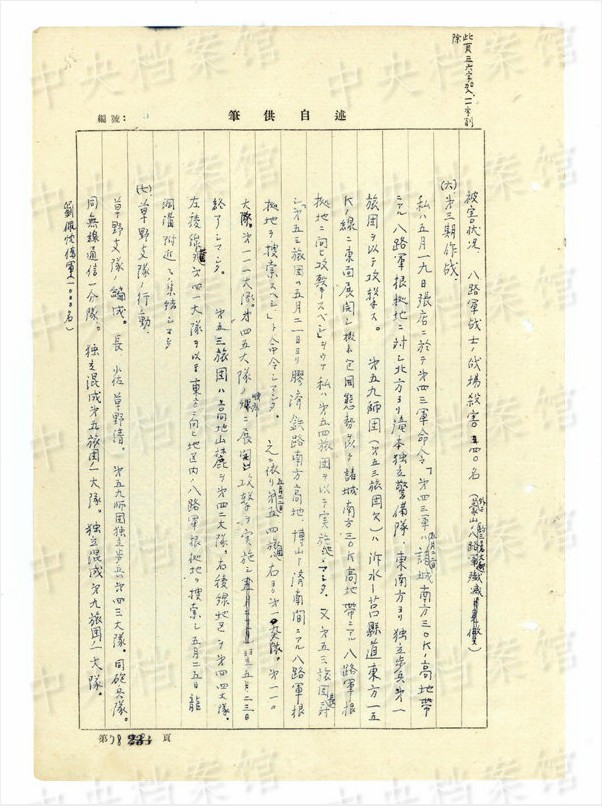 此頁三六字加入、一一字削
除
編號：
自述供筆
被害状况、八路軍战士ノ战場殺害 五四〇名
(六) 第三期作战、
私ハ五月一九日張店ニ於テ第四三軍命令「第四三軍ハ諸城南方三〇Kノ高地帶
ニアル八路軍根拠地ニ対シ北方ヨリ滝本独立警備隊、東南方ヨリ独立歩兵第一
旅团ヲ以テ攻撃ス。第五九师团(第五三旅团欠)ハ沂水ー莒縣道東方一五
K ノ線ニ東面展開シ 包囲態勢 諸城南方三〇K高地帶ニアル八路軍根
拠地ニ向ヒ攻撃スベシ」 私ハ第五四旅团ヲ以テ実施シマシタ。又第五三旅团長ニ対
シ「第五三旅团ハ五月二一日ヨリ膠済鉄路南方高地、博山ー済南間ニアル八路軍根
拠地ヲ搜索スベシ」ト命令シマシタ。之ニ依リ第五四旅团ハ右ヨリ 大隊。第一一〇
大隊。第一一一大隊。第四五大隊ノ 展開 攻撃ヲ実施シ 五月二三日
終了シマシタ。第五三旅团ハ高地山麓ヲ第四二大隊。右後線地区ヲ第四四大隊。
左後線 第四一大隊ヲ以テ東方ニ向ヒ地区内ノ八路軍根拠地ヲ搜索シ五月二五日龍
洞溝附近ニ集結シマシタ
(七) 草野支隊ノ行動、
草野支隊ノ編成。長 少佐 草野清。第五九师团独立歩兵第四三大隊。同砲兵隊。
同無線通信一分隊。独立混成第五旅团ノ一大隊。独立混成第九旅团ノ一大隊。
劉佩忱偽軍一〇〇〇名)
第 頁
中央档案馆